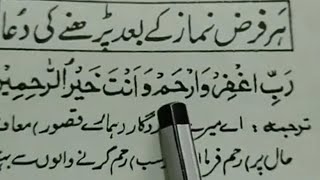 ہر فرض نماز کے بعد پڑھنے کی دعا
رَبِّ اغْفِرْ وَارْحَمْ وَاَنْتَ خَيْرُ الرّٰحِمِيْنَ
ترجمہ: اے میرے ہمارے قصور معاف
حال پر رحم فرما رحم کرنے والوں سے